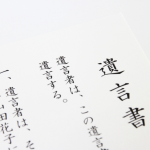 遺言書
遺言者は、この遺言
遺言する。
一、遺言者は、そ
山田花子